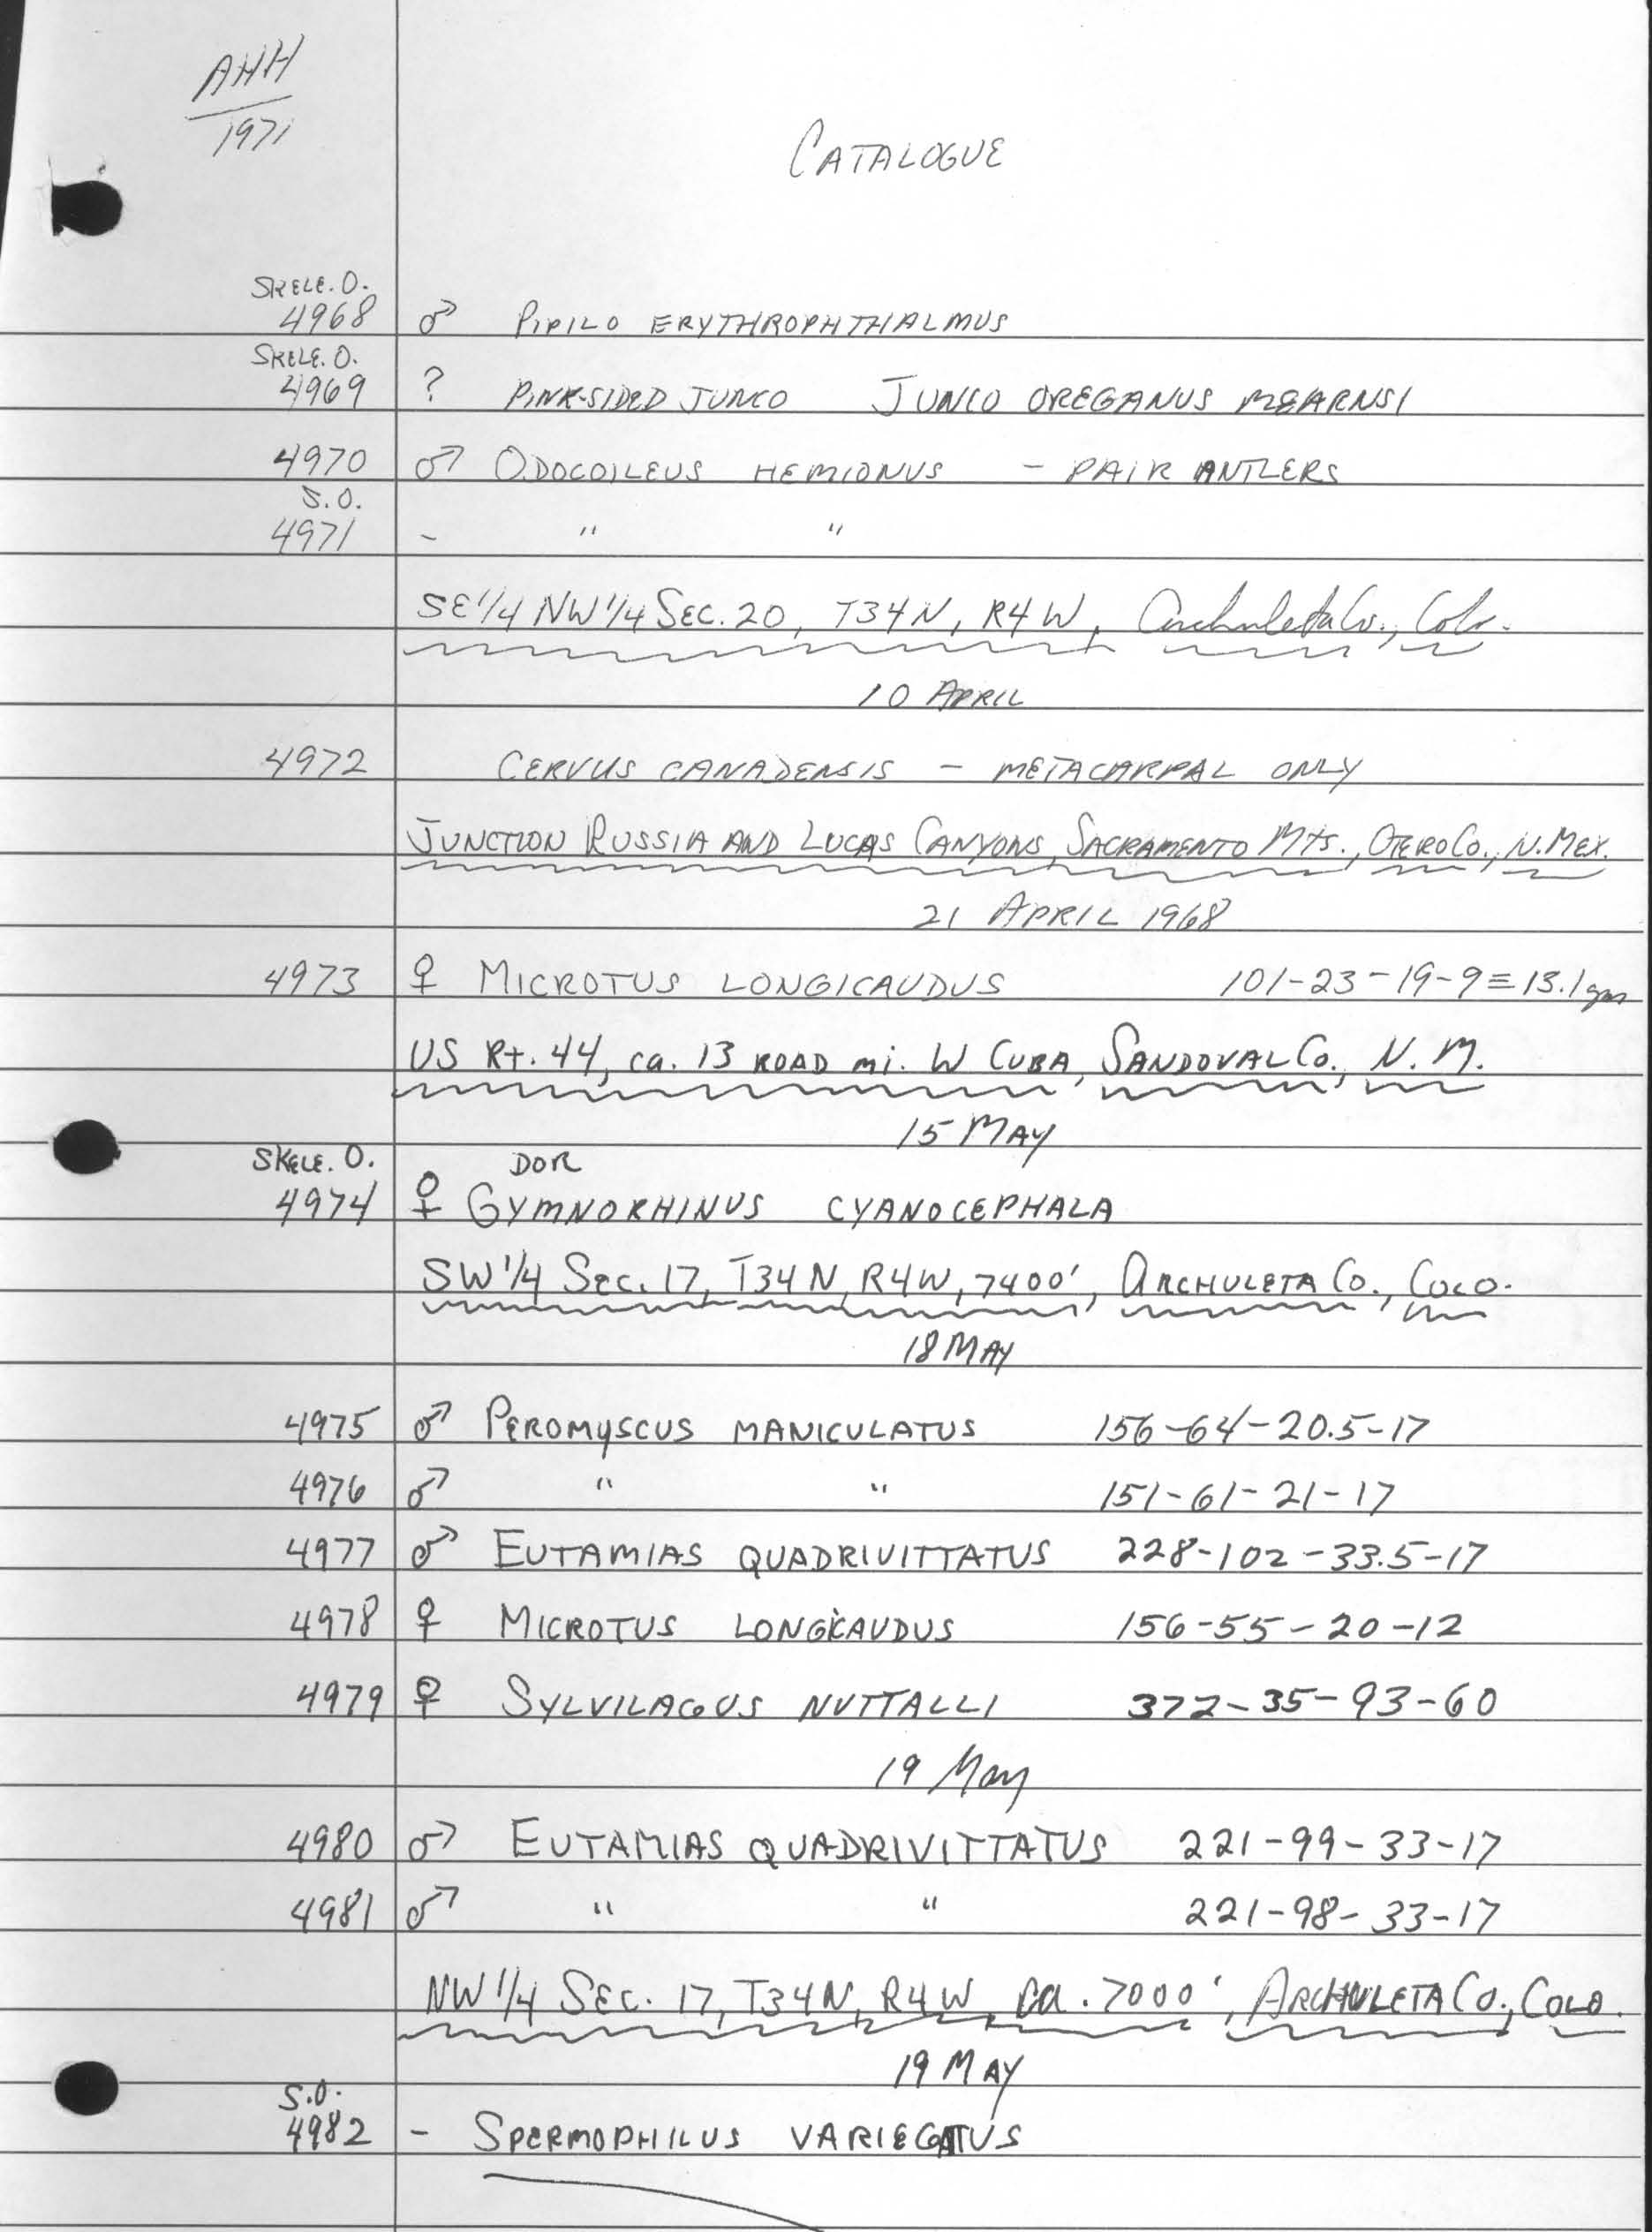 AHH
1971
CATALOGUE
SKELE. O.
4968 ♂ PIPILO ERYTHROPHTHALMUS
SKELE. O.
4969 ? PINK-SIDED JUNCO JUNCO OREGANUS MEARNSI
4970 ♂ ODOCOILEUS HEMIONUS - PAIR ANTLERS
S.O.
4971 - " "
SE 1/4 NW 1/4 SEC. 20, T34N, R4W, Archuleta Co., Colo.
10 APRIL
4972 CERVUS CANADENSIS - METACARPAL ONLY
JUNCTION RUSSIA AND LUCAS CANYONS, SACRAMENTO Mts., OTERO CO., N. MEX.
21 APRIL 1968
4973 ♀ MICROTUS LONGICAUDUS 101-23-19-9≡13.1gm
US Rt. 44, ca. 13 ROAD mi. W CUBA, SANDOVAL Co., N. M.
15 MAY
SKELE. O. DOR
4974 ♀ GYMNORHINUS CYANOCEPHALA
SW 1/4 SEC. 17, T34N, R4W, 7400', ARCHULETA CO., COLO.
18 MAY
4975 ♂ PEROMYSCUS MANICULATUS 156-64-20.5-17
4976 ♂ " " 151-61-21-17
4977 ♂ EUTAMIAS QUADRIVITTATUS 228-102-33.5-17
4978 ♀ MICROTUS LONGICAUDUS 156-55-20-12
4979 ♀ SYLVILAGUS NUTTALLI 372-35-93-60
19 May
4980 ♂ EUTAMIAS QUADRIVITTATUS 221-99-33-17
4981 ♂ " " 221-98-33-17
NW 1/4 SEC. 17, T34N, R4W, ca. 7000', ARCHULETA CO., COLO.
19 MAY
S.O.
4982 - SPERMOPHILUS VARIEGATUS